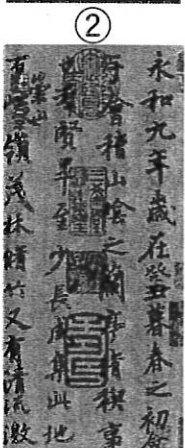 ②
永和九年歲在癸丑暮春之初
于會稽山陰之蘭亭脩禊事
也羣賢畢至少長咸集此地
有崇山峻嶺茂林脩竹又有清流激